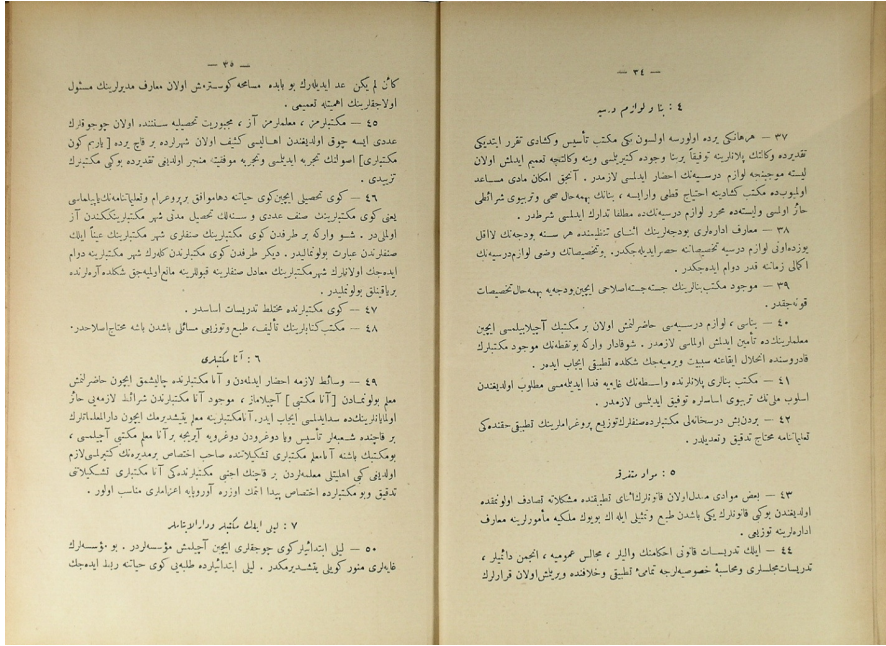 — ٣٤ —
٤ : بنا و لوازم درسيه
٣٧ — هرهانكى يرده اولورسه اولسون يكى مكتب تأسيس وكشادى تقرر ايتديكى
تقديرده وكالتك پلانلرينه توفيقاً بربنا وجوده كتيريلسى وينه وكالتجه تعميم ايدلش اولان
ليسته موجبنجه لوازم درسيه‌نك احضار ايدلسى لازمدر . آنجق امكان مادى مساعد
اولميوبده مكتب كشادينه احتياج قطعى وارايسه ، بنانك بهمه‌حال صحى وتربيوى شرائطى
حائز اولسى وليسته‌ده محرر لوازم درسيه‌نك‌ده مطلقا تدارك ايدلسى شرطدر .
٣٨ — معارف اداره‌لرى بودجه‌لرينك اثناى تنظيمنده هر سنه بودجه‌نك لااقل
يوزده‌اونى لوازم درسيه تخصيصاتنه حصر ايديله‌جكدر. بوتخصيصاتك وضعى لوازم‌درسيه‌نك
اكالى زماننه قدر دوام ايده‌جكدر .
٣٩ — موجود مكتب‌بنالرينك جسته‌جسته‌اصلاحى ايچين‌بودجه‌يه بهمه‌حال‌تخصيصات
قونه‌جقدر .
٤٠ — بناسى ، لوازم درسيه‌سى حاضرلنمش اولان بر مكتبك آچيلابيلمسى ايچين
معلملرينك‌ده تأمين ايدلش اولماسى لازمدر . شوقادار واركه بونقطه‌نك موجود مكتبلرك
قادروسنده انحلال ايقاعنه سببيت ويرميه‌جك شكلده تطبيقى ايجاب ايدر .
٤١ — مكتب بنالرى پلانلرنده واسطه‌نك غايه‌يه فدا ايديله‌مسى مطلوب اولديغندن
اسلوب ملى‌نك تربيوى اساسلره توفيق ايديلسى لازمدر .
٤٢ — بردن‌بش درسخانه‌لى مكتبلرده‌صنفلرك‌توزيع پروغراملرينك تطبيقى‌حقنده‌كى
تعلياتنامه محتاج تدقيق وتعديلدر .
٥ : مواد متفرقه
٤٣ — بعض موادى معدل‌اولان قانونلرك‌اثناى تطبيقنده مشكلاته تصادف اولونمقده
اولديغندن بوكبى قانونلرك يكى باشدن طبع وتمثيلى ايله اك بويوك ملكيه مأمورلرينه معارف
اداره‌لرينه توزيعى .
٤٤ — ايلك تدريسات قانونى احكامنك واليلر ، مجالس عموميه ، انجمن دائميلر ،
تدريسات‌مجلسلرى ومحاسبۀ خصوصيه‌لرجه تمامئ تطبيقى وخلافنده ويريلش‌اولان قرارلرك
— ٣٥ —
كأن لم يكن عد ايديله‌رك بو بابده مسامحه كوسترمش اولان معارف مديرلرينك مسئول
اولاجقلرينك اهميتله تعميمى .
٤٥ — مكتبلرمز ، معلملرمز آز ، مجبوريت تحصيليه سننده اولان چوجوقلرك
عددى ايسه چوق اولديغندن اهاليسى كثيف اولان شهرلرده بر قاچ يرده [ ياريم كون
مكتبلرى ] اصولنك تجربه ايديلسى وتجربه موفقيته منجر اولديغى تقديرده بوكبى مكتبلرك
تزييدى .
٤٦ — كوى تحصيلى ايچين‌كوى حياتنه دهاموافق بر پروغرام وتعلياتنامه‌نك‌ياپيلماسى
يعنى كوى مكتبلرينك صنف عددى و سنه‌لك تحصيل مدتى شهر مكتبلرينككندن آز
اولملى‌در . شو واركه بر طرفدن كوى مكتبلرينك صنفلرى شهر مكتبلرينك عيناً ايلك
صنفلرندن عبارت بولونماليدر . ديكر طرفدن كوى مكتبلرندن كله‌رك شهر مكتبلرينه دوام
ايده‌جك اولانلرك شهرمكتبلرينك معادل صنفلرينه قبوللرينه مانع‌اولميه‌جق شكلده آره‌لرنده
بر ياقينلق بولونمليدر .
٤٧ — كوى مكتبلرنده مختلط تدريسات اساسدر .
٤٨ — مكتب‌كتابلرينك تأليف، طبع وتوزيعى مسائلى باشدن باشه محتاج‌اصلاحدر.
٦ : آنا مكتبلرى
٤٩ — وسائط لازمه احضار ايدلمه‌دن و آنا مكتبلرنده چاليشمق ايچون حاضرلنمش
معلم بولونمـادن [ آنا مكتبى ] آچيلاماز ، موجود آنا مكتبلرندن شرائط لازمه‌يى حائز
اولمايانلرينك‌ده سدايدلسى ايجاب ايدر. آنامكتبلرينه معلم يتيشديرمك ايچون دارالمعلماتلرك
بر قاچنده شعبه‌لر تأسيس ويا دوغرودن دوغرويه آيريجه بر آنا معلم مكتبى آچيلمسى ،
بومكتبك باشنه آنامعلم مكتبلرى تشكيلاتنده صاحب اختصاص برمديره‌نك كتيرلمسى‌لازم
اولديغى كبى اهليتلى معلمه‌لردن بر قاچنك اجنبى مكتبلرنده‌كى آنا مكتبلرى تشكيلاتنى
تدقيق وبو مكتبلرده اختصاص پيدا ايتمك اوزره آوروپايه اعزاملرى مناسب اولور .
٧ : ليلى ايلك مكتبلر ودارالايتاملر
٥٠ — ليلى ابتدائيلر كوى چوجقلرى ايچين آچيلمش مؤسسه‌لردر . بو مؤسسه‌لرك
غايه‌لرى منور كويلى يتشديرمكدر . ليلى ابتدائيلرده طلبه‌يى كوى حياتنه ربط ايده‌جك